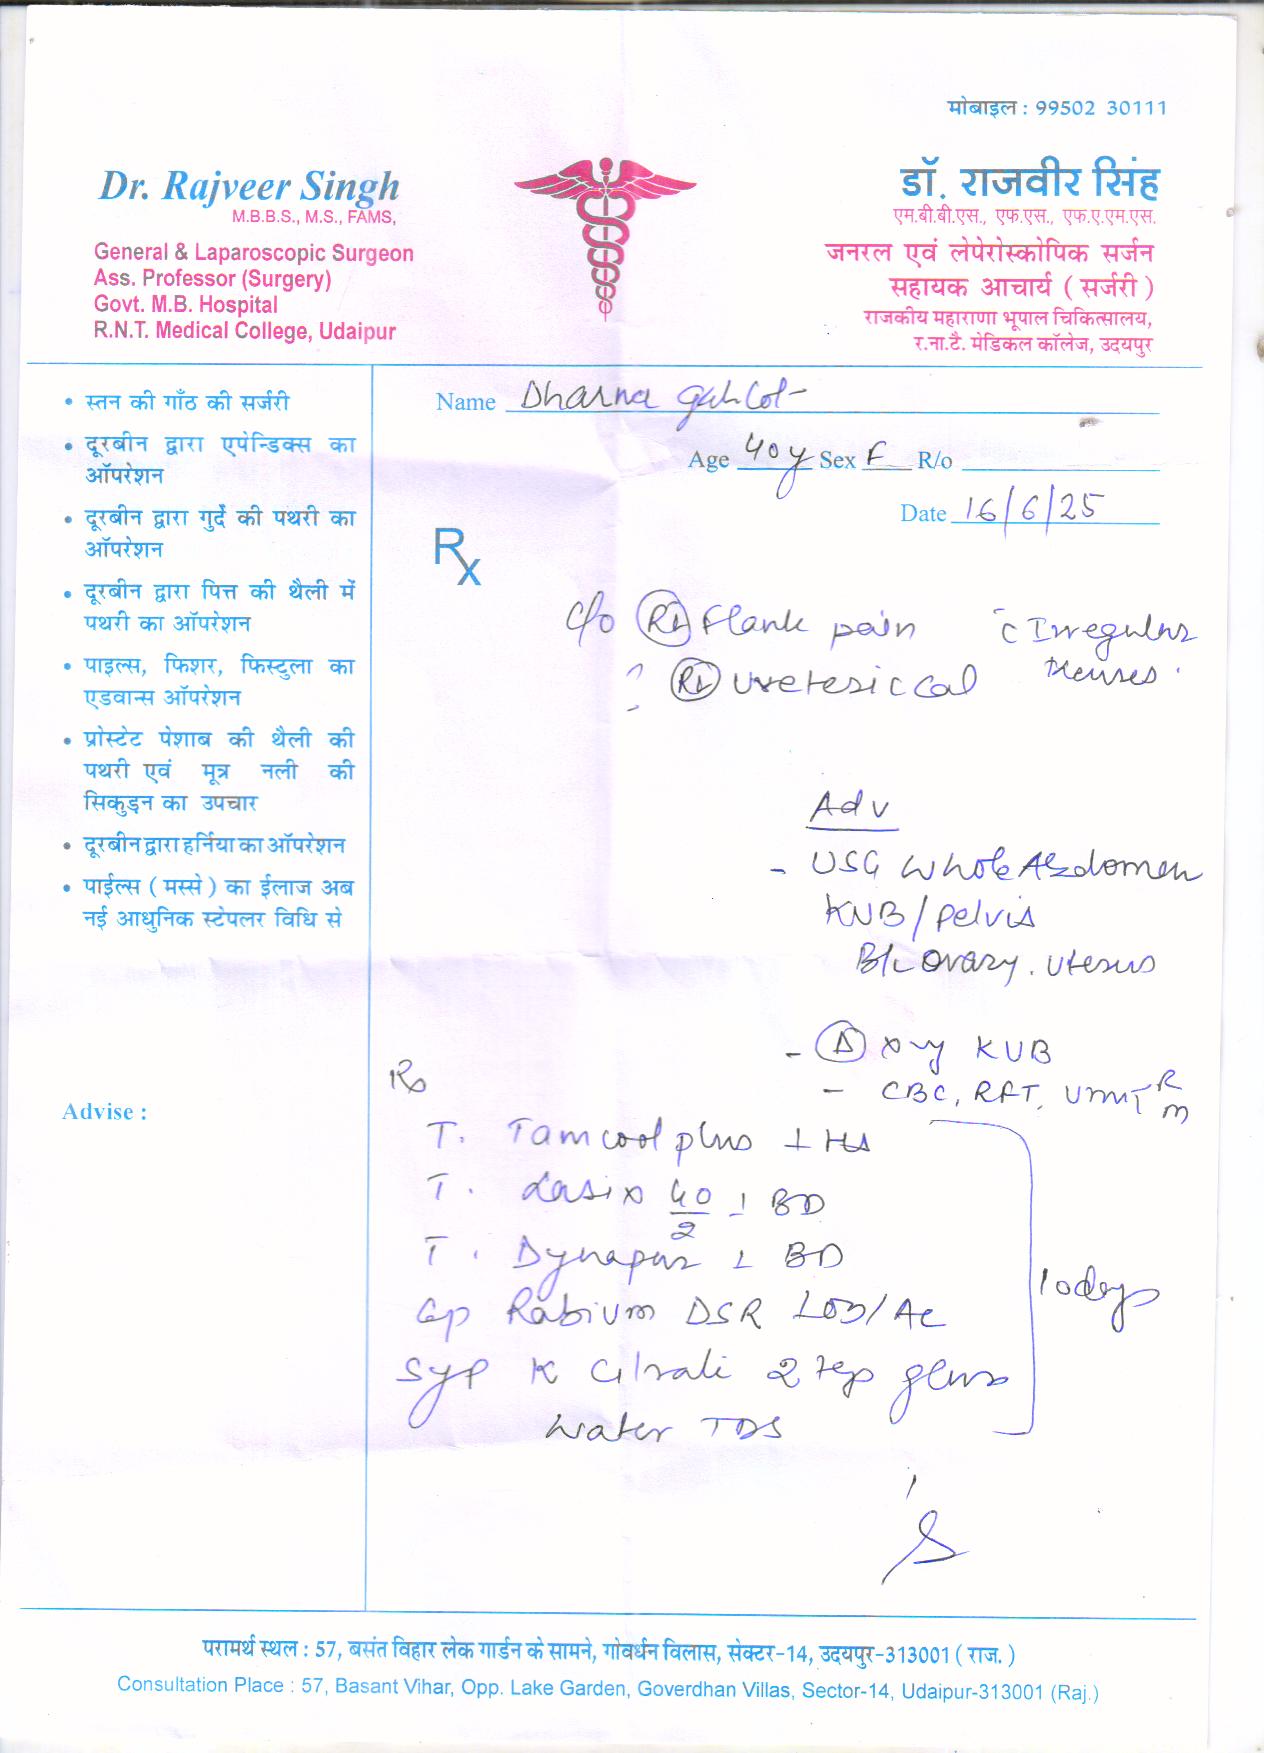 मोबाइल : 99502 30111
Dr. Rajveer Singh
M.B.B.S., M.S., FAMS,
General & Laparoscopic Surgeon
Ass. Professor (Surgery)
Govt. M.B. Hospital
R.N.T. Medical College, Udaipur
डॉ. राजवीर सिंह
एम.बी.बी.एस., एफ.एस., एफ.ए.एम.एस.
जनरल एवं लेपेरोस्कोपिक सर्जन
सहायक आचार्य ( सर्जरी )
राजकीय महाराणा भूपाल चिकित्सालय,
र.ना.टै. मेडिकल कॉलेज, उदयपुर
• स्तन की गाँठ की सर्जरी
• दूरबीन द्वारा एपेन्डिक्स का
ऑपरेशन
• दूरबीन द्वारा गुर्दे की पथरी का
ऑपरेशन
• दूरबीन द्वारा पित्त की थैली में
पथरी का ऑपरेशन
• पाइल्स, फिशर, फिस्टुला का
एडवान्स ऑपरेशन
• प्रोस्टेट पेशाब की थैली की
पथरी एवं मूत्र नली की
सिकुड़न का उपचार
• दूरबीन द्वारा हर्निया का ऑपरेशन
• पाईल्स ( मस्से ) का ईलाज अब
नई आधुनिक स्टेपलर विधि से
Advise :
Name Dharna
Age 40y Sex F R/o
Date 16/6/25
Rx
c/o Rt Flank pain c Irregular
menses.
? Rt ureteric Col
Adv
- USG Whole Abdomen
KUB/pelvis
B/L Ovary. Uterus
- KUB
- CBC, RFT, R
m
Rx
T. Tamcool plus 1 HS
T. Lasix 40/2 1 BD
T. Dynapar 1 BD
Cap Rabium DSR 1 OD/AC
Syp K Citrate 2 tsp glass
water TDS
10 days
परामर्थ स्थल : 57, बसंत विहार लेक गार्डन के सामने, गोवर्धन विलास, सेक्टर-14, उदयपुर-313001 ( राज. )
Consultation Place : 57, Basant Vihar, Opp. Lake Garden, Goverdhan Villas, Sector-14, Udaipur-313001 (Raj.)